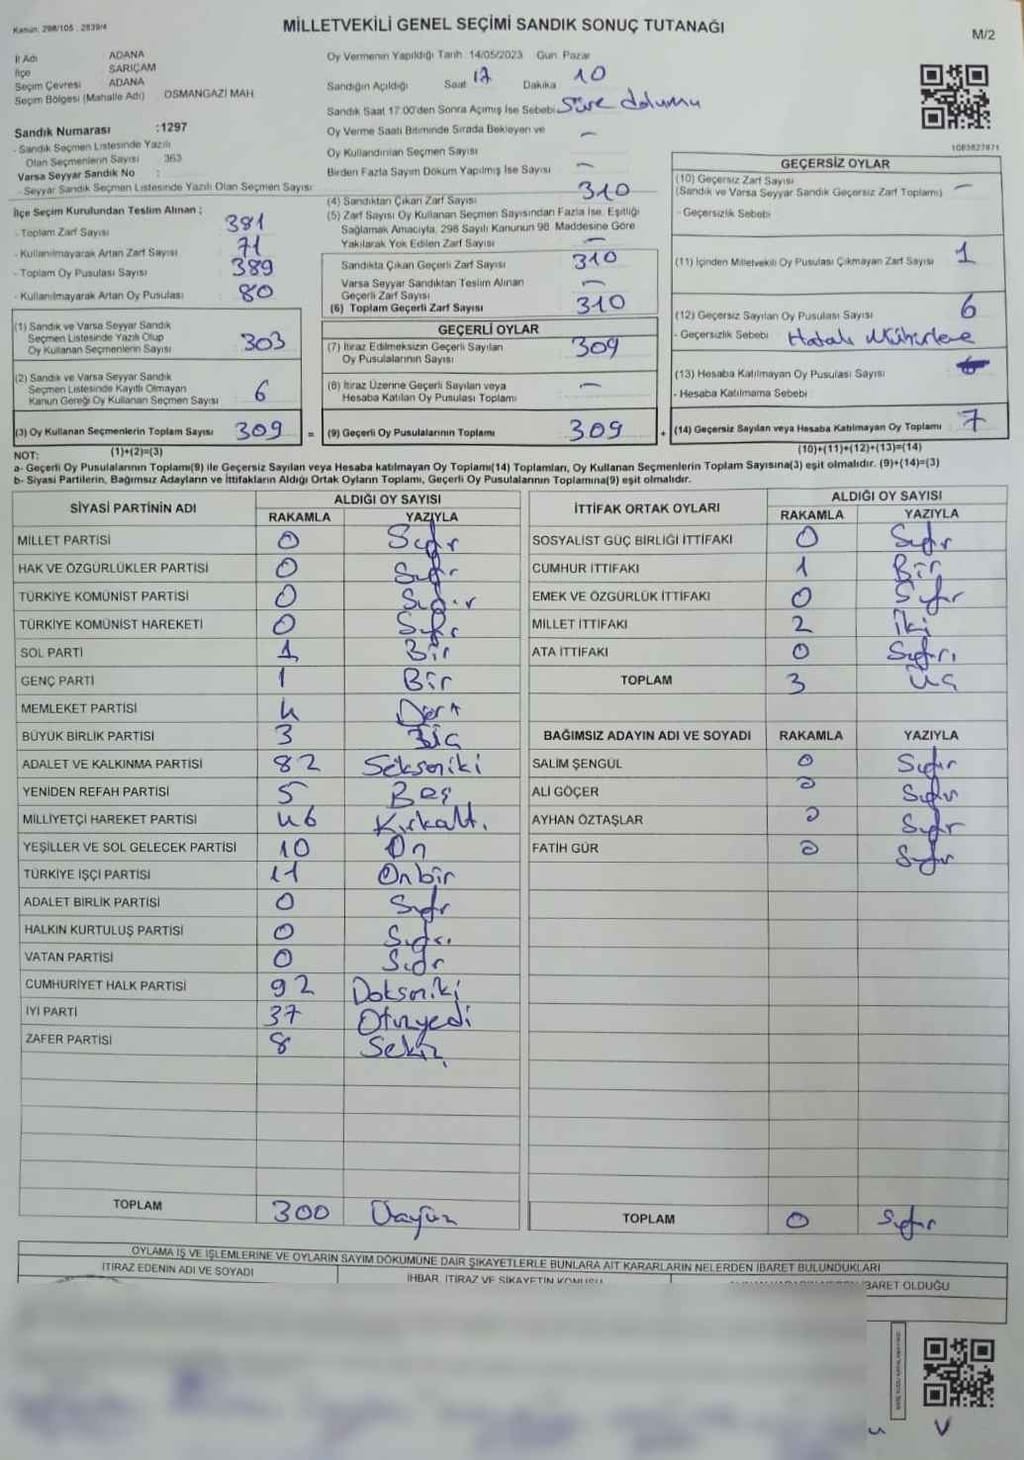 Kanun: 298/105 . 2839/4
MİLLETVEKİLİ GENEL SEÇİMİ SANDIK SONUÇ TUTANAĞI
M/2
İl Adı ADANA
İlçe SARIÇAM
Seçim Çevresi ADANA
Seçim Bölgesi (Mahalle Adı) OSMANGAZİ MAH
Oy Vermenin Yapıldığı Tarih 14/05/2023 Gün Pazar
Sandığın Açıldığı Saat 17 Dakika 10
Sandık Saat 17:00'den Sonra Açılmış İse Sebebi Süre dolumu
Oy Verme Saati Bitiminde Sırada Bekleyen ve
Oy Kullandırılan Seçmen Sayısı –
Birden Fazla Sayım Döküm Yapılmış İse Sayısı –
1083827871
Sandık Numarası :1297
- Sandık Seçmen Listesinde Yazılı
Olan Seçmenlerin Sayısı 363
Varsa Seyyar Sandık No :
- Seyyar Sandık Seçmen Listesinde Yazılı Olan Seçmen Sayısı
İlçe Seçim Kurulundan Teslim Alınan ;
- Toplam Zarf Sayısı 381
- Kullanılmayarak Artan Zarf Sayısı 71
- Toplam Oy Pusulası Sayısı 389
- Kullanılmayarak Artan Oy Pusulası 80
(1) Sandık ve Varsa Seyyar Sandık
Seçmen Listesinde Yazılı Olup
Oy Kullanan Seçmenlerin Sayısı 303
(2) Sandık ve Varsa Seyyar Sandık
Seçmen Listesinde Kayıtlı Olmayan
Kanun Gereği Oy Kullanan Seçmen Sayısı 6
(3) Oy Kullanan Seçmenlerin Toplam Sayısı 309
(1)+(2)=(3)
(4) Sandıktan Çıkan Zarf Sayısı 310
(5) Zarf Sayısı Oy Kullanan Seçmen Sayısından Fazla İse, Eşitliği
Sağlamak Amacıyla, 298 Sayılı Kanunun 98. Maddesine Göre
Yakılarak Yok Edilen Zarf Sayısı –
Sandıkta Çıkan Geçerli Zarf Sayısı 310
Varsa Seyyar Sandıktan Teslim Alınan
Geçerli Zarf Sayısı –
(6) Toplam Geçerli Zarf Sayısı 310
GEÇERLİ OYLAR
(7) İtiraz Edilmeksizin Geçerli Sayılan
Oy Pusulalarının Sayısı 309
(8) İtiraz Üzerine Geçerli Sayılan veya
Hesaba Katılan Oy Pusulası Toplamı –
= (9) Geçerli Oy Pusulalarının Toplamı 309 +
GEÇERSİZ OYLAR
(10) Geçersiz Zarf Sayısı
(Sandık ve Varsa Seyyar Sandık Geçersiz Zarf Toplamı) –
- Geçersizlik Sebebi
(11) İçinden Milletvekili Oy Pusulası Çıkmayan Zarf Sayısı 1
(12) Geçersiz Sayılan Oy Pusulası Sayısı 6
- Geçersizlik Sebebi Hatalı Mühürleme
(13) Hesaba Katılmayan Oy Pusulası Sayısı
- Hesaba Katılmama Sebebi
(14) Geçersiz Sayılan veya Hesaba Katılmayan Oy Toplamı 7
(10)+(11)+(12)+(13)=(14)
NOT:
a- Geçerli Oy Pusulalarının Toplamı(9) ile Geçersiz Sayılan veya Hesaba katılmayan Oy Toplamı(14) Toplamları, Oy Kullanan Seçmenlerin Toplam Sayısına(3) eşit olmalıdır. (9)+(14)=(3)
b- Siyasi Partilerin, Bağımsız Adayların ve İttifakların Aldığı Ortak Oyların Toplamı, Geçerli Oy Pusulalarının Toplamına(9) eşit olmalıdır.
SİYASİ PARTİNİN ADI ALDIĞI OY SAYISI
RAKAMLA YAZIYLA
MİLLET PARTİSİ 0 Sıfır
HAK VE ÖZGÜRLÜKLER PARTİSİ 0 Sıfır
TÜRKİYE KOMÜNİST PARTİSİ 0 Sıfır
TÜRKİYE KOMÜNİST HAREKETİ 0 Sıfır
SOL PARTİ 1 Bir
GENÇ PARTİ 1 Bir
MEMLEKET PARTİSİ 4 Dört
BÜYÜK BİRLİK PARTİSİ 3 Üç
ADALET VE KALKINMA PARTİSİ 82 Sekseniki
YENİDEN REFAH PARTİSİ 5 Beş
MİLLİYETÇİ HAREKET PARTİSİ 46 Kırkaltı
YEŞİLLER VE SOL GELECEK PARTİSİ 10 On
TÜRKİYE İŞÇİ PARTİSİ 11 Onbir
ADALET BİRLİK PARTİSİ 0 Sıfır
HALKIN KURTULUŞ PARTİSİ 0 Sıfır
VATAN PARTİSİ 0 Sıfır
CUMHURİYET HALK PARTİSİ 92 Doksaniki
İYİ PARTİ 37 Otuzyedi
ZAFER PARTİSİ 8 Sekiz
TOPLAM 300 Üçyüz
İTTİFAK ORTAK OYLARI ALDIĞI OY SAYISI
RAKAMLA YAZIYLA
SOSYALİST GÜÇ BİRLİĞİ İTTİFAKI 0 Sıfır
CUMHUR İTTİFAKI 1 Bir
EMEK VE ÖZGÜRLÜK İTTİFAKI 0 Sıfır
MİLLET İTTİFAKI 2 İki
ATA İTTİFAKI 0 Sıfır
TOPLAM 3 Üç
BAĞIMSIZ ADAYIN ADI VE SOYADI RAKAMLA YAZIYLA
SALİM ŞENGÜL 0 Sıfır
ALİ GÖÇER 0 Sıfır
AYHAN ÖZTAŞLAR 0 Sıfır
FATİH GÜR 0 Sıfır
TOPLAM 0 Sıfır
OYLAMA İŞ VE İŞLEMLERİNE VE OYLARIN SAYIM DÖKÜMÜNE DAİR ŞİKAYETLERLE BUNLARA AİT KARARLARIN NELERDEN İBARET BULUNDUKLARI
İTİRAZ EDENİN ADI VE SOYADI
İHBAR, İTİRAZ VE ŞİKAYETİN KONUSU
İBARET OLDUĞU